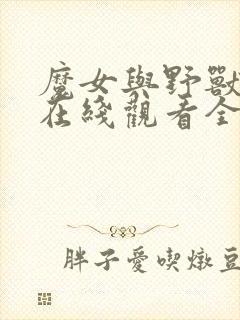 魔女與野獸
在綫觀看全
胖子愛喫燉豆